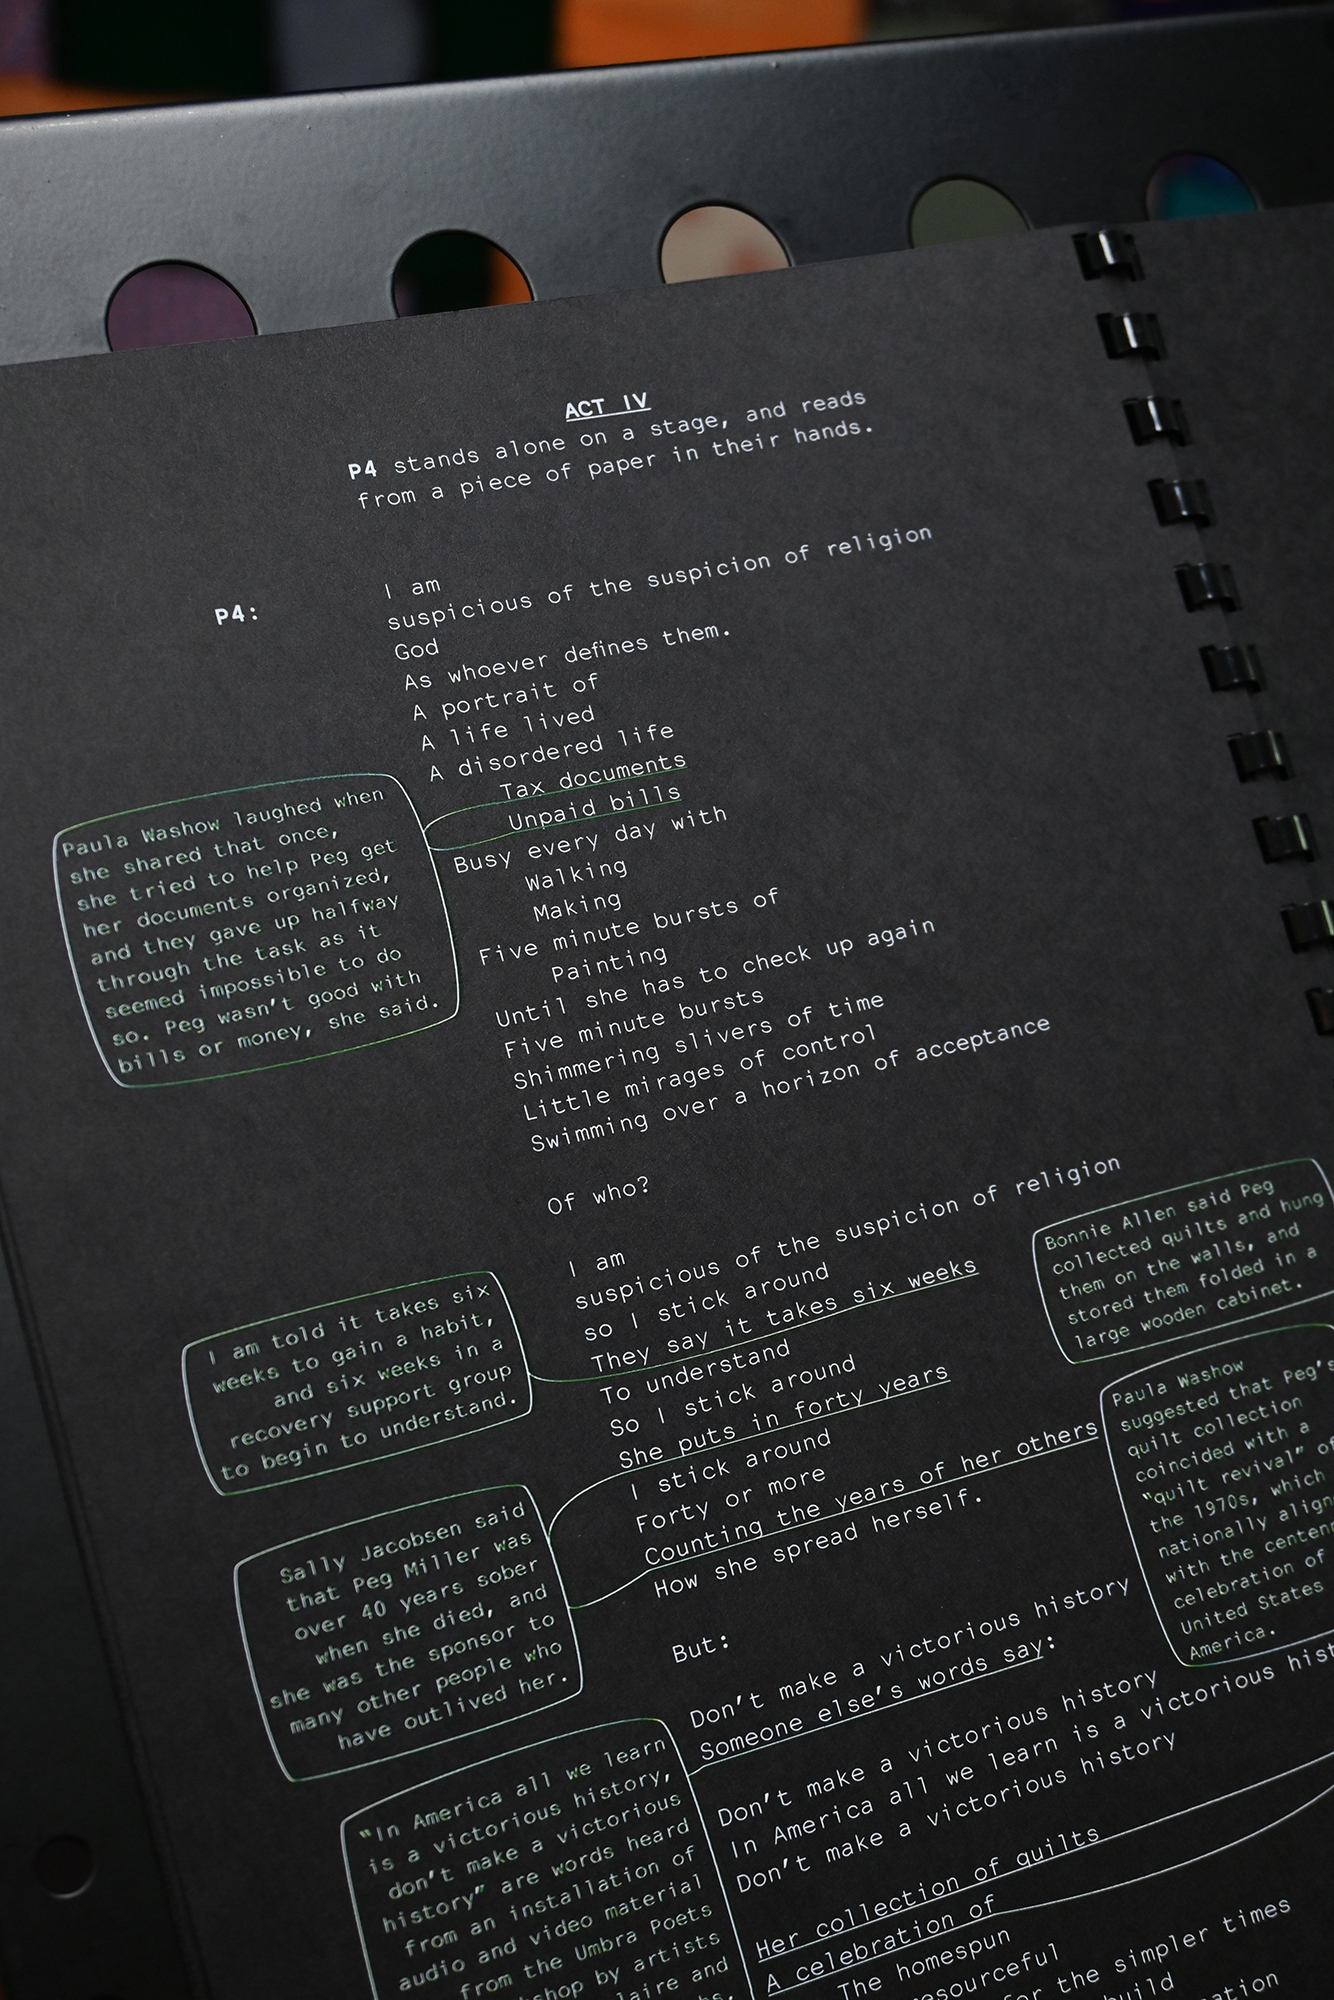 ACT IV
P4 stands alone on a stage, and reads
from a piece of paper in their hands.
P4:
I am
suspicious of the suspicion of religion
God
As whoever defines them.
A portrait of
A life lived
A disordered life
Tax documents
Unpaid bills
Busy every day with
Walking
Making
Five minute bursts of
Painting
Until she has to check up again
Five minute bursts
Shimmering slivers of time
Little mirages of control
Swimming over a horizon of acceptance
Paula Washow laughed when
she shared that once,
she tried to help Peg get
her documents organized,
and they gave up halfway
through the task as it
seemed impossible to do
so. Peg wasn't good with
bills or money, she said.
Of who?
I am
suspicious of the suspicion of religion
so I stick around
They say it takes six weeks
To understand
So I stick around
She puts in forty years
I stick around
Forty or more
Counting the years of her others
How she spread herself.
I am told it takes six
weeks to gain a habit,
and six weeks in a
recovery support group
to begin to understand.
Sally Jacobsen said
that Peg Miller was
over 40 years sober
when she died, and
she was the sponsor to
many other people who
have outlived her.
Bonnie Allen said Peg
collected quilts and hung
them on the walls, and
stored them folded in a
large wooden cabinet.
Paula Washow
suggested that Peg's
quilt collection
coincided with a
"quilt revival" of
the 1970s, which
nationally
with the
celebration of
United States
America.
But:
Don't make a victorious history
Someone else's words say:
Don't make a victorious history
In America all we learn is a victorious
Don't make a victorious history
"In America all we learn
is a victorious history,
don't make a victorious
history" are words heard
from an installation of
audio and video material
from the Umbra Poets
by artists
and
Her collection of quilts
A celebration of
The homespun
for the simpler times